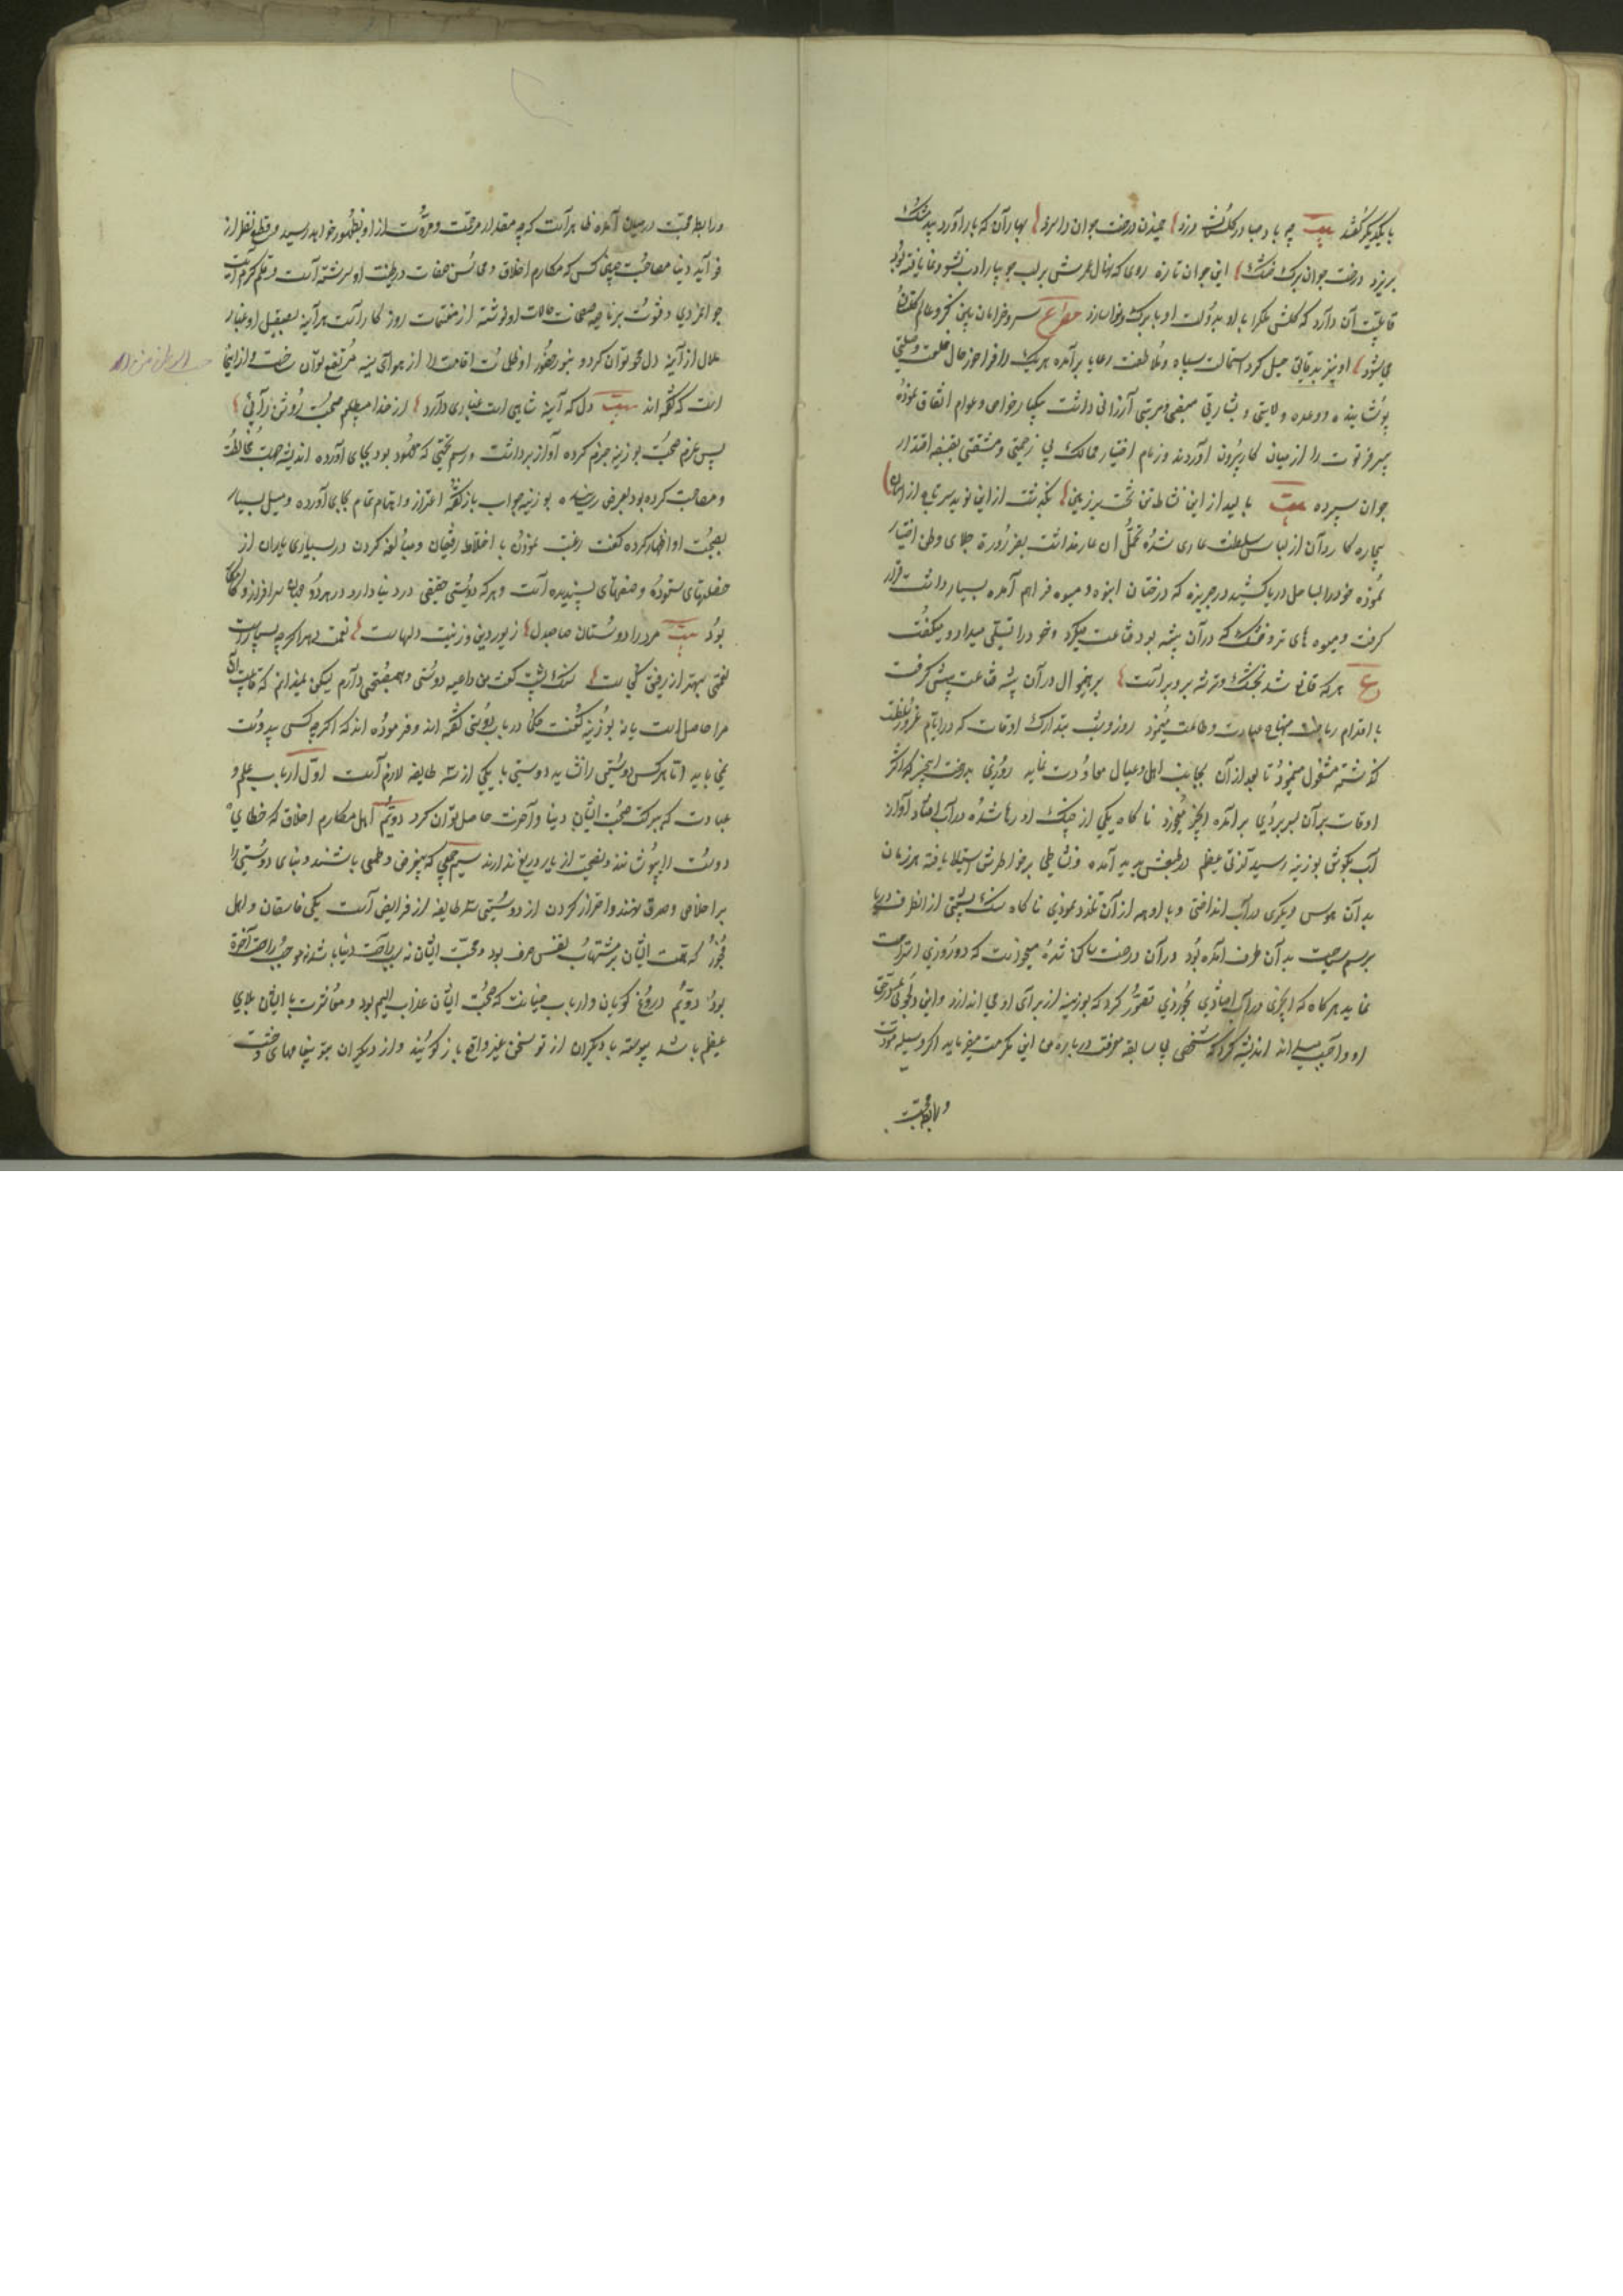 با یکدیگر گفتند بیت چه باد صبا در گلستان وزد چمیدن درخت جوان را سزد بهاران که باد آورد بید مشک
بریزد درخت جوان برک خشک این جوان تازه روی که نهال عمرش بر لب جویبار ادب نشو و نما یافته بود
قابلیت آن دارد که گلشن ملک را با او بدولت او با برک و نوا سازد مصراع سرو خرامان باین
می شود او نیز بدقایق حیل گرد استمالت سپاه و ملاطفت رعایا برآمده هر یک را فراخور حال خلعت و صلتی
پوشانیده و وعده ولایتی و بشارتی منصبی و مرتبتی ارزانی داشت یکبار خواص و عوام اتفاق نموده
پیر فرتوت را از میان کار بیرون آوردند و زمام اختیار ممالک بی زحمتی و مشقتی بقبضه اقتدار
جوان سپرده بیت بالید از این نشاط تن تخت بر زمین بگذشت از این نوید سر تاج از آسمان
بیچاره کاردان از لباس سلطنت عاری شده تحمل آن عار نداشت بضرورة جلای وطن اختیار
نموده خود را بساحل دریا کشید در جزیره که درختان انبوه و میوه فراهم آمده بسیار داشت قرار
گرفت و میوه های تر و خشک که در آن بیشه بود قناعت میکرد و خود را تسلی میداد و میگفت
ع هر که قانع شد بخشک و تر شه بر و بر است برینمنوال در آن بیشه قناعت پیش گرفت
با اقدام ریاضت منهاج عبادت و طاعت می پیمود روز و شب بتدارک اوقات که در ایام غرور سلطنت
گذشته مشغول میبود تا بعد از آن بجانب اهل و عیال معاودت نماید روزی بدرخت انجیر که اکثر
اوقات بر آن بسر بردی برآمده انجیر میخورد ناگاه یکی از چنک او رها شده در آب افتاد آواز
آب بگوش بوزینه رسید لذتی عظیم در طبعش پدید آمده و نشاطی بر خواطرش استیلا یافته هر زمان
بدان هوس دیگری در آب انداختی و با اوهه از آن تلذذ نمودی ناگاه سنک پشتی از انطرف دریا
برسم سیاحت بدآن طرف آمده بود و در آن درخت ساکن شده میخواست که دو روزی استراحت
نماید هرگاه که انجیری در آب افتادی بخوردی تصور کرد که بوزینه از برای او می اندازد و این دلجوئی
او واجب میداند اندیشه کرد که شخصی بی سابقه معرفت درباره من این مکرمت میفرماید اگر وسیله مودت
و رابطه محبت
و رابطه محبت در میان آمده ظاهر است که چه مقدار مرحمت و مروت از او بظهور خواهد رسید و قطع نظر از
فوائد دنیا مصاحبت چنین کس که مکارم اخلاق و محاسن صفات در طینت او سرشته است و بقلم کرم آیت
جوانمردی و فتوت بر ناصیه صفحات حالات او نوشته از مغتنمات روزگار است هر آینه بصیقل او غبار
ملال از آینه دل محو توان کرد و بنور حضور او ظلمات اقامت را از هوای سینه مرتفع توان ساخت و از اینجا
است که گفته اند بیت دل که آینه شاهی است غباری دارد از خدا میطلبم صحبت روشن رائی
پس عزم صحبت بوزینه جزم کرده آواز برداشت و رسم تحیتی که معهود بود بجای آورده اندیشه صحبت مخالطت
و مصاحبت کرده بود بعرض رسانیده بوزینه جواب باز گفته اعزاز و اهتمام تمام بجای آورده و میل بسیار
بصحبت او اظهار کرده گفت رغبت نمودن با اختلاط رفیقان و مبالغه کردن در بسیاری یاران از
خصلتهای ستوده و صفتهای پسندیده است و هر که دوستی حقیقی در دنیا دارد در هر دو جهان سرافراز و کامکار
بود بیت مرد را دوستان صاحبدل زیور دین و زینت دلهاست نعمت دهر اگرچه بسیار است
نعمتی بهتر از رفیق نیکی است سنک پشت گفت من داعیه دوستی و هم صحبتی دارم لیکن نمیدانم که قابلیت آن
مرا حاصل است یا نه بوزینه گفت حکما در باب دوستی گفته اند و فرموده اند که اگرچه کسی بیدوست
نمی باید اما هر کس دوستی را نشاید دوستی با یکی از سه طایفه لازم است اول ارباب علم و
عبادت که ببرکت صحبت ایشان دنیا و آخرت حاصل توان کرد دوم اهل مکارم اخلاق که خطای
دوست را بپوشانند و نصیحت از یار دریغ ندارند سیم جمعی که بیغرض و طمعی باشند و بنای دوستی را
بر اخلاص و صدق نهند و احتراز کردن از دوستی سه طایفه از فرایض است یکی فاسقان و اهل
فجور که همت ایشان بر مشتهیات نفس صرف بود و محبت ایشان نه سبب راحت دنیا باشد نه موجب راحت آخرة
بود دویم دروغ گویان و ارباب خیانت که صحبت ایشان عذاب الیم بود و معاشرت با ایشان بلای
عظیم باشد پیوسته با دیگران از تو سخن غیر واقع باز گویند و از دیگران بتو پیغامهای وحشت